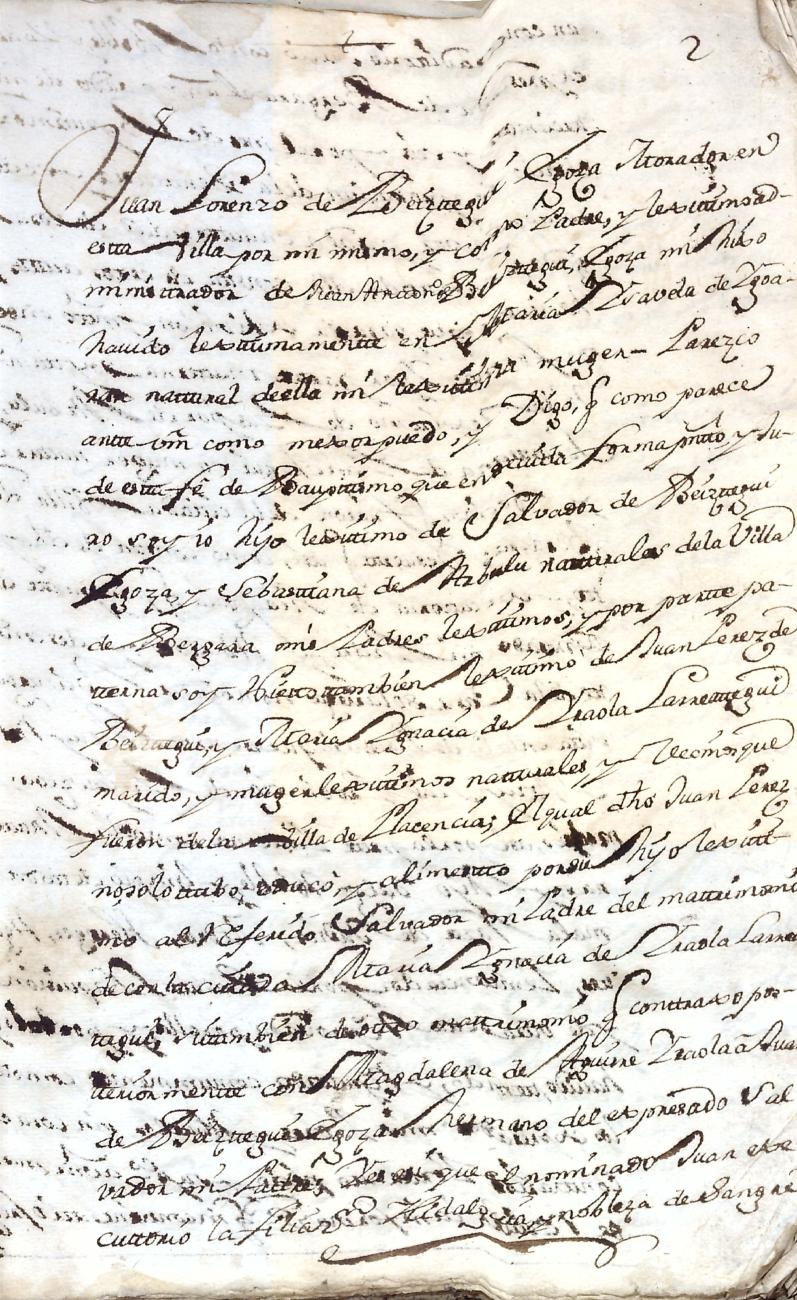 2
Juan Lorenzo de Beiztegui Ygoza Morador en
esta Villa por mi mismo, y como Padre, y lexitimo ad-
ministrador de Juan Antonio Beiztegui, Ygoza mi hixo
havido lexitimamente en Maria Ysavela de Ygoa-
natural de ella mi lexitima muger - Parezco
ante vm como mexor puedo, y Digo, q como parece
de esta feé de Bauptismo que en devida forma pnto, y Ju-
ro soy io hijo lexitimo de Salvador de Beiztegui
Ygoza, y Sebastiana de Arbulu naturales dela Villa
de Bergara mis Padres lexitimos, y por partte pa-
tterna soy Nietto tambien lexitimo de Juan Perez de
Beiztegui, y Maria Ygnacia de Yraola Larreattegui
marido, y muger lexitimos naturales y vecinos que
fueron dela Villa de Placencia; El qual dho Juan Perez
no solo tubo, y alimento por su hijo lexiti
mo al Referido Salvador mi Padre del mattrimoni
de con la cittada Maria Ygnacia de Yraola Larrea
ttegui, si tambien de otro mattrimonio q conttraxo pos-
tteriormentte con Magdalena de Aguirre Yraola á Juan
de Beiztegui Ygoza hermano del expresado Sal
vador mi Padre; Y es así que el nominado Juan exe
cuttorio la filiazon Hidalguia, y nobleza de Sangre